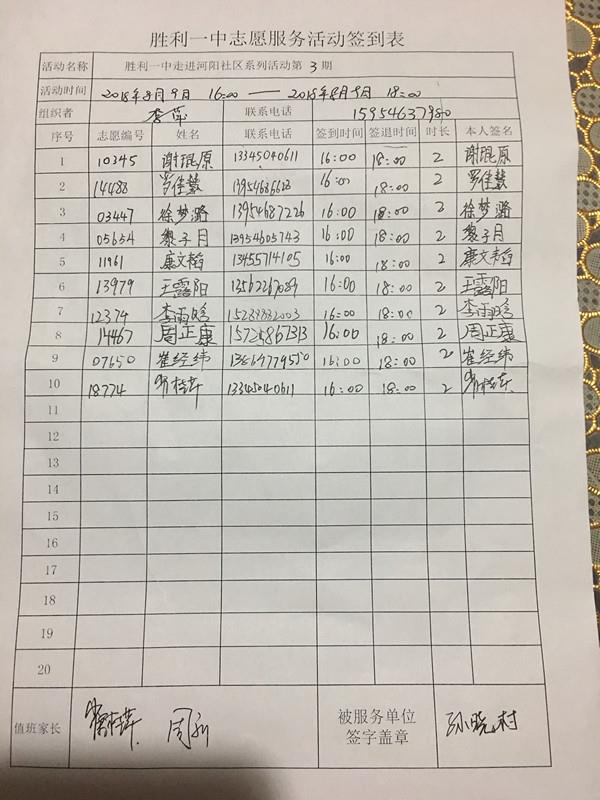 胜利一中志愿服务活动签到表
活动名称 胜利一中走进河阳社区系列活动第 3 期
活动时间 2018年8月9日 16:00 — 2018年8月9日 18:00
组织者 李萍 联系电话 15954637980
序号 志愿编号 姓名 联系电话 签到时间 签退时间 时长 本人签名
1 10345 谢琨原 13345040611 16:00 18:00 2 谢琨原
2 14488 罗佳慧 16:00 18:00 2 罗佳慧
3 03447 徐梦潞 13954687226 16:00 18:00 2 徐梦潞
4 05654 黎子月 13954605743 16:00 18:00 2 黎子月
5 11961 康文韬 13455714105 16:00 18:00 2 康文韬
6 13979 王露阳 13562267089 16:00 18:00 2 王露阳
7 12374 李雨晗 15239832003 16:00 18:00 2 李雨晗
8 14467 周正康 16:00 18:00 2 周正康
9 07650 崔经纬 16:00 18:00 2 崔经纬
10 18774 13345040611 16:00 18:00 2
11
12
13
14
15
16
17
18
19
20
值班家长 被服务单位
签字盖章 孙晓村